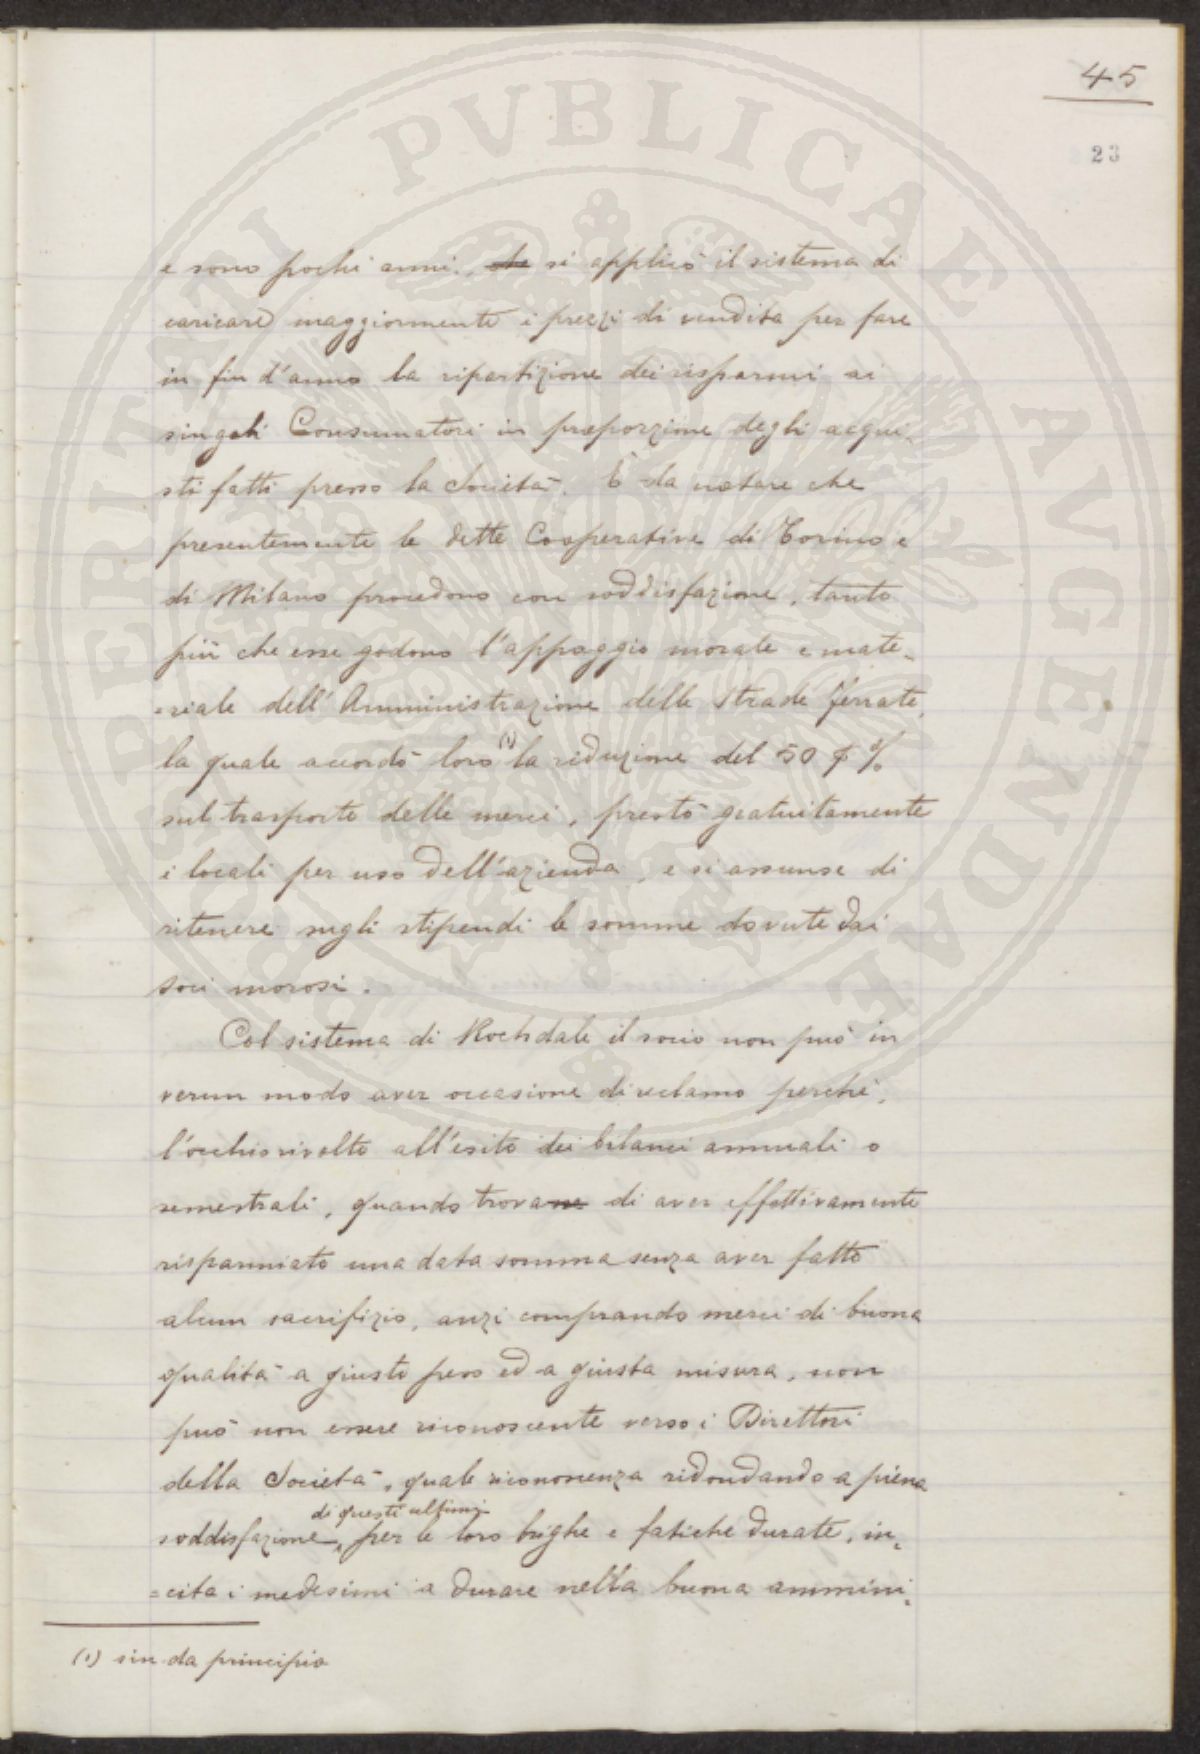 45
23
e sono pochi anni, che si applicò il sistema di
caricare maggiormente i prezzi di vendita per fare
in fin d'anno la ripartizione dei risparmi ai
singoli Consumatori in proporzione degli acqui-
sti fatti presso la Società. È da notare che
presentemente le dette Cooperative di Torino e
di Milano procedono con soddisfazione, tanto
più che esse godono l'appoggio morale e mate-
=riale dell'Amministrazione delle Strade Ferrate,
la quale accordò loro (1) la riduzione del 50 %
sul trasporto delle merci, prestò gratuitamente
i locali per uso dell'azienda, e si assunse di
ritenere sugli stipendi le somme dovute dai
soci morosi.
Col sistema di Rochdale il socio non può in
verun modo aver occasione di reclamo perchè,
l'occhio rivolto all'esito dei bilanci annuali o
semestrali, quando trovane di aver effettivamente
risparmiato una data somma senza aver fatto
alcun sacrifizio, anzi comprando merci di buona
qualità a giusto peso ed a giusta misura, non
può non essere riconoscente verso i Direttori
della Società, quale riconoscenza ridondando a piena
di questi ultimi
soddisfazione, per le loro brighe e fatiche durate, in-
=cita i medesimi a durare nella buona ammini-
(1) sin da principio
PROSPERITATI PVBLICAE AVGENDAE